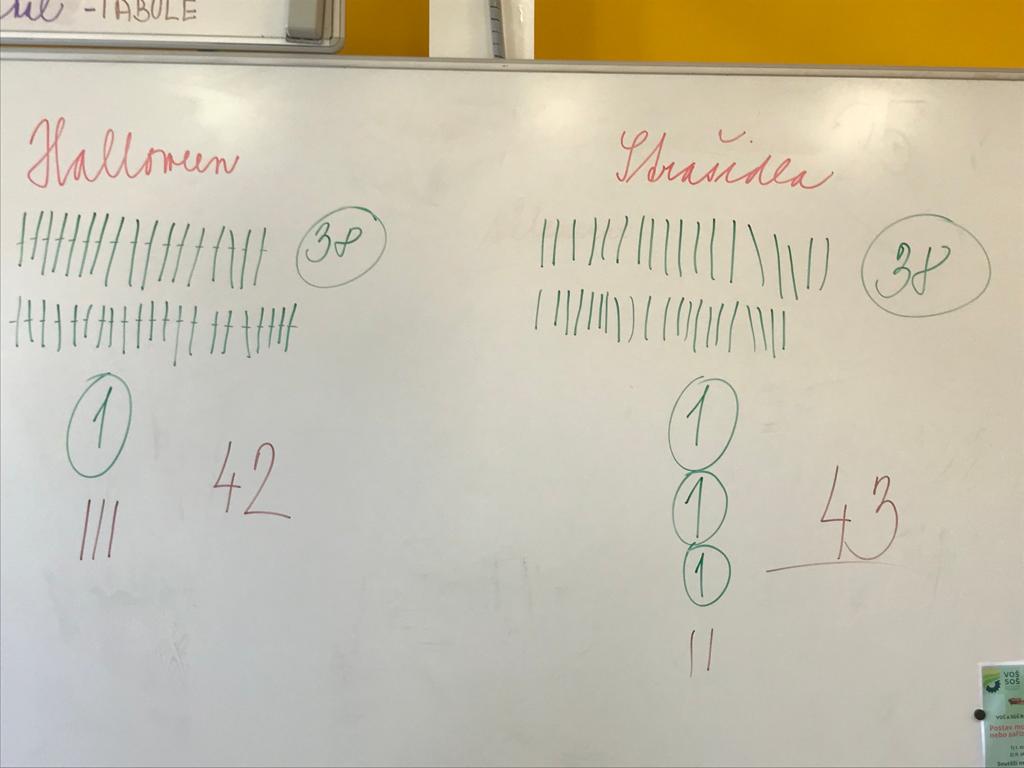 -TABULE
Halloween
38
1
42
Strašidla
38
1
1
1
43
VOŠ
SOŠ